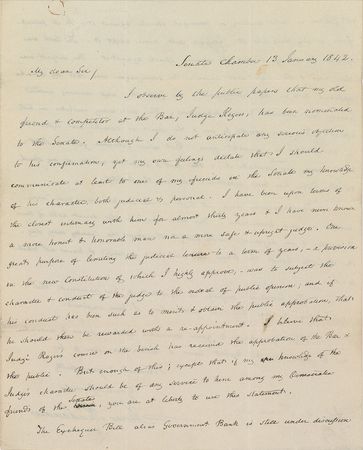 Senate Chamber 13 January 1842.
My dear Sir/
I observe by the public papers that my old
friend & competitor at the Bar, Judge Rogers, has been nominated
to the Senate. Although I do not anticipate any serious objection
to his confirmation, yet my own feelings dictate that I should
communicate at least to one of my friends in the Senate my knowledge
of his character, both judicial & personal. I have been upon terms of
the closest intimacy with him for almost thirty years & I have never known
a more honest & honorable man nor a more safe & upright judge. One
great purpose of limiting the judicial tenure to a term of years, – a provision
in the new Constitution of which I highly approve, – was to subject the
character & conduct of the judge to the ordeal of public opinion; and if
his conduct has been such as to merit & obtain the public approbation, that
he should then be rewarded with a re-appointment. I believe that
Judge Rogers' course on the bench has received the approbation of the Bar &
the public. But enough of this; except that if my knowledge of the
Judge's character should be of any service to him among my Democratic
friends of the Senate, you are at liberty to use this statement.
The Exchequer Bill alias Government Bank is still under discussion